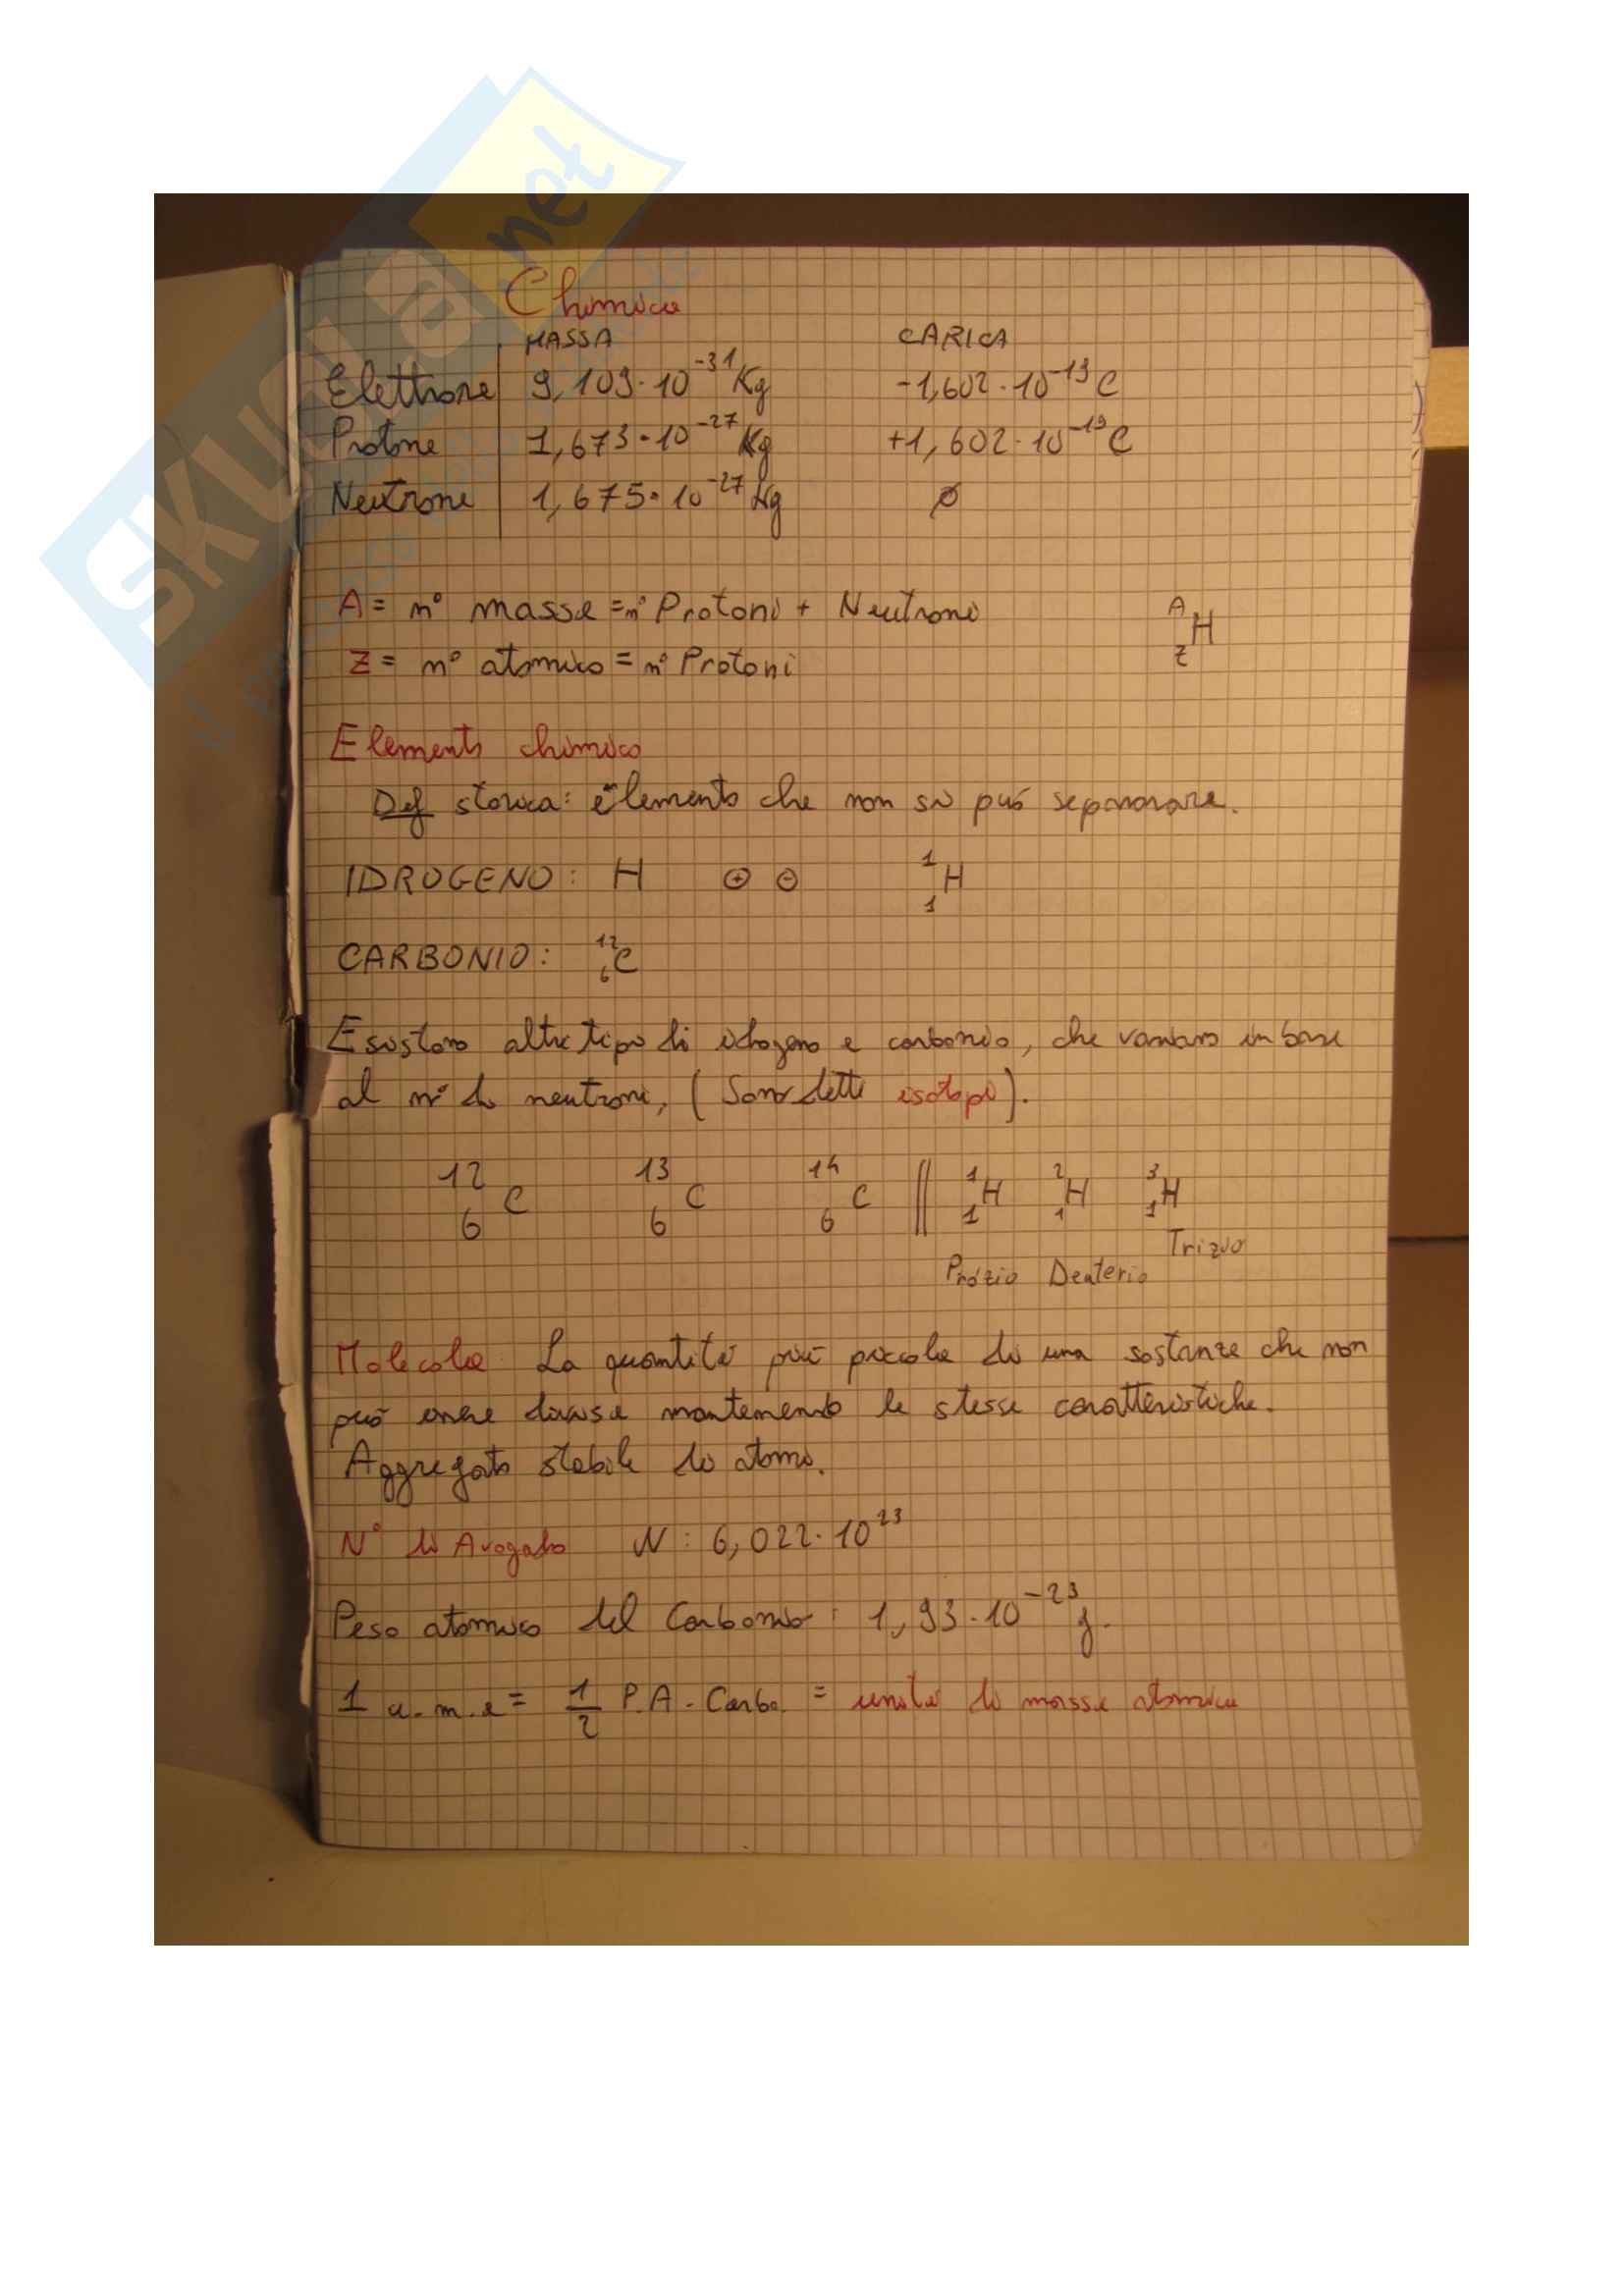 SKUOLA.net
Chimica
MASSA CARICA
Elettrone 9,109·10⁻³¹ Kg -1,602·10⁻¹⁹ C
Protone 1,673·10⁻²⁷ Kg +1,602·10⁻¹⁹ C
Neutrone 1,675·10⁻²⁷ Kg ∅
A = n° massa = n° Protoni + Neutroni ᴬ H
Z = n° atomico = n° Protoni Z
Elemento chimico
Def storica: elemento che non si può separarare.
IDROGENO: H ⊕ ⊖ ¹₁H
CARBONIO: ¹²₆C
Esistono altri tipi di idrogeno e carbonio, che variano in base
al n° di neutroni, (Sono detti isotopi).
¹²₆C ¹³₆C ¹⁴₆C || ¹₁H ²₁H ³₁H
Prózio Deuterio Trizio
Molecola La quantità più piccola di una sostanza che non
può essere divisa mantenendo le stesse caratteristiche.
Aggregato stabile di atomi.
N° di Avogado N: 6,022·10²³
Peso atomico del Carbonio: 1,93·10⁻²³ g.
1 u.m.a = 1/2 P.A. Carbo. = unità di massa atomica